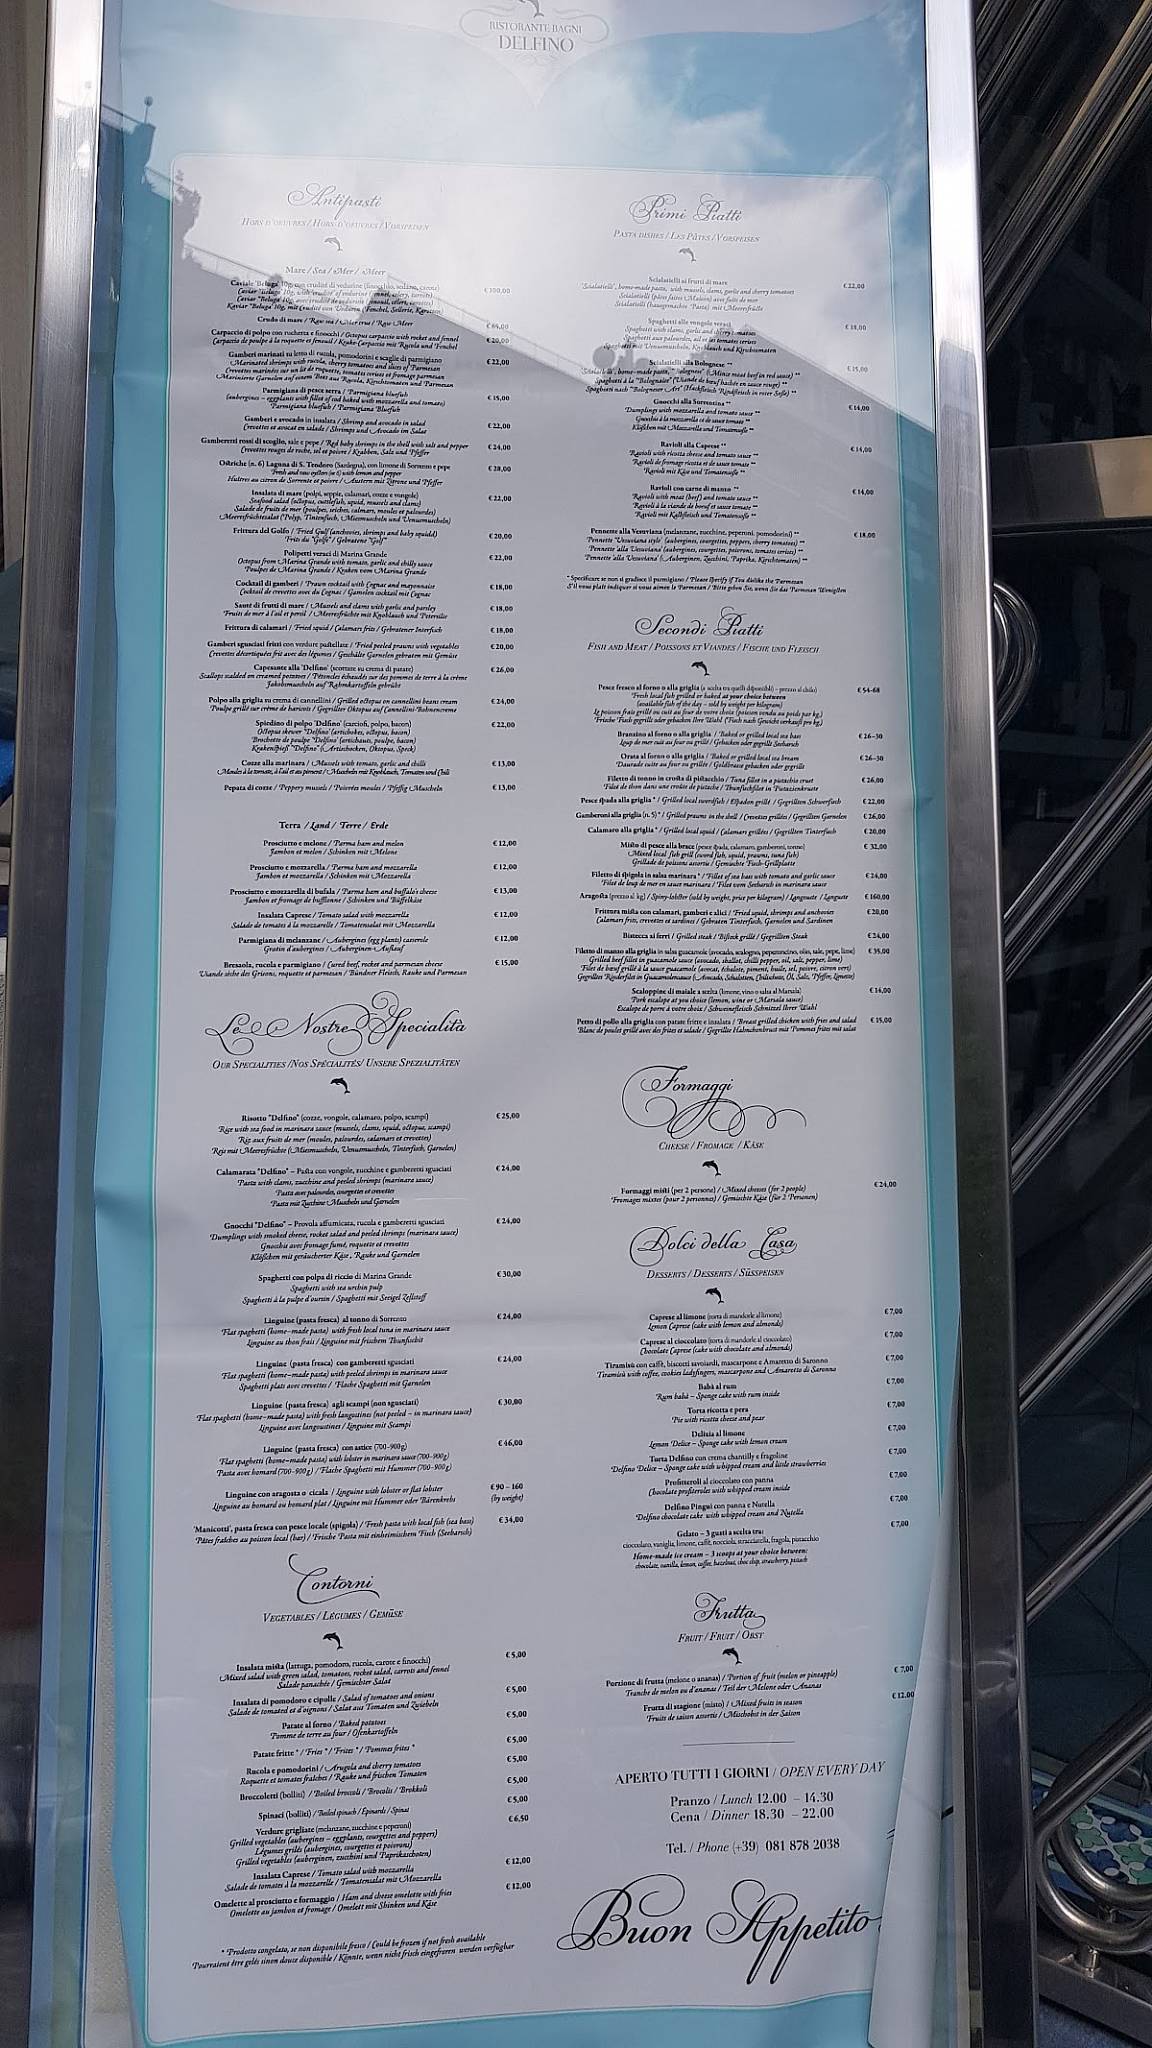 RISTORANTE BAGNI
DELFINO
Antipasti
HORS D'OEUVRES / HORS-D'OEUVRES / VORSPEISEN
Mare / Sea / Mer / Meer
Caviale 'Beluga' 10g, con crudité di verdurine (finocchio, sedano, carote)
€ 100,00
Crudo di mare / Raw sea / Mer crus / Raw Meer
Carpaccio di polpo con ruchetta e finocchi / Octopus carpaccio with rocket and fennel
€ 20,00
Carpaccio de poulpe à la roquette et fenouil / Krake-Carpaccio mit Rucola und Fenchel
Gamberi marinati su letto di rucola, pomodorini e scaglie di parmigiano
€ 22,00
Marinated shrimps with rucola, cherry tomatoes and slices of Parmesan
Crevettes marinées sur un lit de roquette, tomates cerises et fromage parmesan
Marinierte Garnelen auf einem Bett aus Rucola, Kirschtomaten und Parmesan
Parmigiana di pesce azzurro / Parmigiana bluefish
€ 15,00
(aubergines - eggplants with fillet of cod baked with mozzarella and tomato)
Parmigiana bluefish / Parmigiana Bluefish
Gamberi e avocado in insalata / Shrimp and avocado in salad
€ 22,00
Crevettes et avocad en salade / Shrimps und Avocado im Salat
Gamberetti rossi di scoglio, sale e pepe / Red baby shrimps in the shell with salt and pepper
€ 24,00
Crevettes rouges de roche, sel et poivre / Krabben, Salz und Pfeffer
Ostriche (n. 6) Laguna di S. Teodoro (Sardegna), con limone di Sorrento e pepe
€ 28,00
Fresh and raw oysters (n. 6) with lemon and pepper
Huîtres au citron de Sorrente et poivre / Austern mit Zitrone und Pfeffer
Insalata di mare (polpi, seppie, calamari, cozze e vongole)
€ 22,00
Seafood salad (octopus, cuttlefish, squid, mussels and clams)
Salade de fruits de mer (poulpes, seiches, calmars, moules et palourdes)
Meeresfrüchtesalat (Polyp, Tintenfisch, Miesmuscheln und Venusmuscheln)
Frittura del Golfo / Fried Gulf (anchovies, shrimps and baby squidd)
€ 20,00
Frits du "Golfe" / Gebratene "Golf"
Polipetti veraci di Marina Grande
€ 22,00
Octopus from Marina Grande with tomato, garlic and chilly sauce
Poulpes de Marina Grande / Kraken vom Marina Grande
Cocktail di gamberi / Prawn cocktail with Cognac and mayonnaise
€ 18,00
Cocktail de crevettes au Cognac / Garnelen cocktail mit Cognac
Sauté di frutti di mare / Mussels and clams with garlic and parsley
€ 18,00
Fruits de mer à l'ail et persil / Meeresfrüchte mit Knoblauch und Petersilie
Frittura di calamari / Fried squid / Calamars frits / Gebratener Tintenfisch
€ 18,00
Gamberi sgusciati fritti con verdure pastellate / Fried peeled prawns with vegetables
€ 20,00
Crevettes décortiquées frit avec des légumes / Geschälte Garnelen gebraten mit Gemüse
Capesante alla 'Delfino' (scottate su crema di patate)
€ 26,00
Scallops scalded on creamed potatoes / Pétoncles échaudés sur des pommes de terre à la crème
Jakobsmuscheln auf Rahmkartoffeln gebrüht
Polpo alla griglia su crema di cannellini / Grilled octopus on cannellini beans cream
€ 24,00
Poulpe grillé sur crème de haricots / Gegrillter Oktopus auf Cannellini-Bohnencreme
Spiedino di polpo 'Delfino' (carciofi, polpo, bacon)
€ 22,00
Octopus skewer "Delfino" (artichokes, octopus, bacon)
Brochette de poulpe "Delfino" (artichauts, poulpe, bacon)
Krakenspieß "Delfino" (Artischocken, Oktopus, Speck)
Cozze alla marinara / Mussels with tomato, garlic and chilli
€ 13,00
Moules à la tomate, à l'ail et au piment / Muscheln mit Knoblauch, Tomaten und Chili
Pepata di cozze / Peppery mussels / Poivrées moules / Pfeffig Muscheln
€ 13,00
Terra / Land / Terre / Erde
Prosciutto e melone / Parma ham and melon
€ 12,00
Jambon et melon / Schinken mit Melone
Prosciutto e mozzarella / Parma ham and mozzarella
€ 12,00
Jambon et mozzarella / Schinken mit Mozzarella
Prosciutto e mozzarella di bufala / Parma ham and buffalo's cheese
€ 13,00
Jambon et fromage de bufflonne / Schinken und Büffelkäse
Insalata Caprese / Tomato salad with mozzarella
€ 12,00
Salade de tomates à la mozzarella / Tomatensalat mit Mozzarella
Parmigiana di melanzane / Aubergines (egg plants) casserole
€ 12,00
Gratin d'aubergines / Auberginen-Auflauf
Bresaola, rucola e parmigiano / Cured beef, rocket and parmesan cheese
€ 15,00
Viande sèche des Grisons, roquette et parmesan / Bündner Fleisch, Rauke und Parmesan
Le Nostre Specialità
OUR SPECIALITIES / NOS SPÉCIALITÉS / UNSERE SPEZIALITÄTEN
Risotto "Delfino" (cozze, vongole, calamaro, polpo, scampi)
€ 25,00
Rice with sea food in marinara sauce (mussels, clams, squid, octopus, scampi)
Riz aux fruits de mer (moules, palourdes, calamars et crevettes)
Reis mit Meeresfrüchte (Miesmuscheln, Venusmuscheln, Tintenfisch, Garnelen)
Calamarata "Delfino" – Pasta con vongole, zucchine e gamberetti sgusciati
€ 24,00
Pasta with clams, zucchine and peeled shrimps (marinara sauce)
Pasta avec palourdes, courgettes et crevettes
Pasta mit Zucchine Muscheln und Garnelen
Gnocchi "Delfino" – Provola affumicata, rucola e gamberetti sgusciati
€ 24,00
Dumplings with smoked cheese, rocket salad and peeled shrimps (marinara sauce)
Gnocchis avec fromage fumé, roquette et crevettes
Klößchen mit geräucherter Käse, Rauke und Garnelen
Spaghetti con polpa di riccio di Marina Grande
€ 30,00
Spaghetti with sea urchin pulp
Spaghetti à la pulpe d'oursin / Spaghetti mit Seeigel Zellstoff
Linguine (pasta fresca) al tonno di Sorrento
€ 24,00
Flat spaghetti (home-made pasta) with fresh local tuna in marinara sauce
Linguine au thon frais / Linguine mit frischem Thunfisch
Linguine (pasta fresca) con gamberetti sgusciati
€ 24,00
Flat spaghetti (home-made pasta) with peeled shrimps in marinara sauce
Spaghetti plats avec crevettes / Flache Spaghetti mit Garnelen
Linguine (pasta fresca) agli scampi (non sgusciati)
€ 30,00
Flat spaghetti (home-made pasta) with fresh langostines (not peeled - in marinara sauce)
Linguine avec langoustines / Linguine mit Scampi
Linguine (pasta fresca) con astice (700-900g)
€ 46,00
Flat spaghetti (home-made pasta) with lobster in marinara sauce (700-900g)
Pasta avec homard (700-900g) / Flache Spaghetti mit Hummer (700-900g)
Linguine con aragosta o cicala / Linguine with lobster or flat lobster
€ 90 – 160
Linguine au homard ou homard plat / Linguine mit Hummer oder Bärenkrebs
(by weight)
'Manicotti', pasta fresca con pesce locale (spigola) / Fresh pasta with local fish (sea bass)
€ 34,00
Pâtes fraîches au poisson local (bar) / Frische Pasta mit einheimischem Fisch (Seebarsch)
Contorni
VEGETABLES / LÉGUMES / GEMÜSE
Insalata mista (lattuga, pomodoro, rucola, carote e finocchi)
€ 5,00
Mixed salad with green salad, tomatoes, rocket salad, carrots and fennel
Salade panachée / Gemischter Salat
Insalata di pomodoro e cipolle / Salad of tomatoes and onions
€ 5,00
Salade de tomated et d'oignons / Salat aus Tomaten und Zwiebeln
Patate al forno / Baked potatoes
€ 5,00
Pomme de terre au four / Ofenkartoffeln
Patate fritte * / Fries * / Frites * / Pommes frites *
€ 5,00
Rucola e pomodorini / Arugola and cherry tomatoes
€ 5,00
Roquette et tomates fraîches / Rauke und frischen Tomaten
Broccoletti (bolliti) / Boiled broccoli / Brocolis / Brokkoli
€ 5,00
Spinaci (bolliti) / Boiled spinach / Epinards / Spinat
€ 5,00
Verdure grigliate (melanzane, zucchine e peperoni)
€ 6,50
Grilled vegetables (aubergines – eggplants, courgettes and peppers)
Légumes grilés (aubergines, courgettes et poivrons)
Grilled vegetables (auberginen, zucchini und Paprikaschoten)
Insalata Caprese / Tomato salad with mozzarella
€ 12,00
Salade de tomates à la mozzarelle / Tomatensalat mit Mozzarella
Omelette al prosciutto e formaggio / Ham and cheese omelette with fries
€ 12,00
Omelette au jambon et fromage / Omelett mit Shinken und Käse
* Prodotto congelato, se non disponibile fresco / Could be frozen if not fresh available
Pourraient être gelés sinon douce disponible / Könnte, wenn nicht frisch eingefroren werden verfügbar
Primi Piatti
PASTA DISHES / LES PÂTES / VORSPEISEN
Scialatielli ai frutti di mare
€ 22,00
'Scialatielli', home-made pasta, with mussels, clams, garlic and cherry tomatoes
Scialatielli (pâtes faites (Maison) avec fuits de mer
Scialatielli (hausgemachte Pasta) mit Meeresfrüchte
Spaghetti alle vongole veraci
€ 18,00
Spaghetti with clams, garlic and cherry tomatoes
Spaghetti aux palourdes, ail et les tomates cerises
Spaghetti mit Venusmuscheln, Knoblauch und Kirschtomaten
Scialatielli alla Bolognese **
€ 15,00
'Scialatielli', home-made pasta, "Bolognese" (Mince meat beef in red sauce) **
Spaghetti à la "Bolognaise" (Viande de bœuf hachée en sauce rouge) **
Spaghetti nach "Bologneser Art" (Hackfleisch Rindfleisch in roter Soße) **
Gnocchi alla Sorrentina **
€ 14,00
Dumplings with mozzarella and tomato sauce **
Gnocchis à la mozzarella et de sauce tomate **
Klößchen mit Mozzarella und Tomatensoße **
Ravioli alla Caprese **
€ 14,00
Ravioli with ricotta cheese and tomato sauce **
Ravioli de fromage ricotta et de sauce tomate **
Ravioli mit Käse und Tomatensoße **
Ravioli con carne di manzo **
€ 14,00
Ravioli with meat (beef) and tomato sauce **
Ravioli à la viande de boeuf et sauce tomate **
Ravioli mit Kalbfleisch und Tomatensoße **
Pennette alla Vesuviana (melanzane, zucchine, peperoni, pomodorini) **
€ 18,00
Pennette 'Vesuviana style' (aubergines, courgettes, peppers, cherry tomatoes) **
Pennette 'alla Vesuviana' (aubergines, courgettes, poivrons, tomates cerises) **
Pennette 'alla Vesuviana' (Auberginen, Zucchini, Paprika, Kirschtomaten) **
* Specificare se non si gradisce il parmigiano / Please specify if You dislike the Parmesan
S'il vous plaît indiquer si vous aimez le Parmesan / Bitte geben Sie, wenn Sie das Parmesan Wenigsten
Secondi Piatti
FISH AND MEAT / POISSONS ET VIANDES / FISCHE UND FLEISCH
Pesce fresco al forno o alla griglia (a scelta tra quelli diponibili) – prezzo al chilo)
€ 54-68
Fresh local fish grilled or baked at your choice between
(available fish of the day – sold by weight per kilogram)
Le poisson frais grillé ou cuit au four de votre choix (poisson vendu au poids par kg.)
Frische Fisch gegrillt oder gebacken Ihre Wahl (Fisch nach Gewicht verkauft pro kg.)
Branzino al forno o alla griglia / Baked or grilled local sea bass
€ 26-30
Loup de mer cuit au four ou grillé / Gebacken oder gegrillt Seebarsch
Orata al forno o alla griglia / Baked or grilled local sea bream
€ 26-30
Daurade cuite au four ou grillée / Goldbrasse gebacken oder gegrillt
Filetto di tonno in crosta di pistacchio / Tuna fillet in a pistachio crust
€ 26,00
Filet de thon dans une croûte de pistache / Thunfischfilet in Pistazienkruste
Pesce spada alla griglia * / Grilled local swordfish / Espadon grillé / Gegrillten Schwerfisch
€ 22,00
Gamberoni alla griglia (n. 5) * / Grilled prawns in the shell / Crevettes grillées / Gegrillten Garnelen
€ 26,00
Calamaro alla griglia * / Grilled local squid / Calamars grillées / Gegrillten Tinterfisch
€ 20,00
Misto di pesce alla brace (pesce spada, calamaro, gamberoni, tonno)
€ 32,00
Mixed local fish grill (sword fish, squid, prawns, tuna fish)
Grillade de poissons assortie / Gemischte Fisch-Grillplatte
Filetto di spigola in salsa marinara * / Fillet of sea bass with tomato and garlic sauce
€ 24,00
Filet de loup de mer en sauce marinara / Filet vom Seebarsch in marinara sauce
Aragosta (prezzo al kg) / Spiny-lobster (sold by weight, price per kilogram) / Langouste / Languste
€ 160,00
Frittura mista con calamari, gamberi e alici / Fried squid, shrimps and anchovies
€ 20,00
Calamari frits, crevettes et sardines / Gebraten Tintenfisch, Garnelen und Sardinen
Bistecca ai ferri / Grilled steak / Bifteck grillé / Gegrillten Steak
€ 24,00
Filetto di manzo alla griglia in salsa guacamole (avocado, scalogno, peperoncino, olio, sale, pepe, lime)
€ 35,00
Grilled beef fillet in guacamole sauce (avocado, shallot, chilli pepper, oil, salt, pepper, lime)
Filet de bœuf grillé à la sauce guacamole (avocat, échalote, piment, huile, sel, poivre, citron vert)
Gegrilltes Rinderfilet in Guacamolesauce (Avocado, Schalotten, Chilischote, Öl, Salz, Pfeffer, Limette)
Scaloppine di maiale a scelta (limone, vino o salsa al Marsala)
€ 14,00
Pork escalope at you choice (lemon, wine or Marsala sauce)
Escalope de porc à votre choix / Schweinefleisch Schnitzel Ihrer Wahl
Petto di pollo alla griglia con patate fritte e insalata / Breast grilled chicken with fries and salad
€ 15,00
Blanc de poulet grillé avec des frites et salade / Gegrillte Hähnchenbrust mit Pommes frites mit salat
Formaggi
CHEESE / FROMAGE / KÄSE
Formaggi misti (per 2 persone) / Mixed cheeses (for 2 people)
€ 24,00
Fromages mixtes (pour 2 personnes) / Gemischte Käse (für 2 Personen)
Dolci della Casa
DESSERTS / DESSERTS / SÜSSPEISEN
Caprese al limone (torta di mandorle al limone)
€ 7,00
Lemon Caprese (cake with lemon and almonds)
Caprese al cioccolato (torta di mandorle al cioccolato)
€ 7,00
Chocolate Caprese (cake with chocolate and almonds)
Tiramisù con caffè, biscotti savoiardi, mascarpone e Amaretto di Saronno
€ 7,00
Tiramisù with coffee, cookies ladyfingers, mascarpone and Amaretto di Saronno
Babà al rum
€ 7,00
Rum babà – Sponge cake with rum inside
Torta ricotta e pera
€ 7,00
Pie with ricotta cheese and pear
Delizia al limone
€ 7,00
Lemon Delice – Sponge cake with lemon cream
Torta Delfino con crema chantilly e fragoline
€ 7,00
Delfino Delice – Sponge cake with whipped cream and little strawberries
Profitteroli al cioccolato con panna
€ 7,00
Chocolate profiteroles with whipped cream inside
Delfino Pingui con panna e Nutella
€ 7,00
Delfino chocolate cake with whipped cream and Nutella
Gelato – 3 gusti a scelta tra:
€ 7,00
cioccolato, vaniglia, limone, caffè, nocciola, stracciatella, fragola, pistacchio
Home-made ice cream – 3 scoops at your choice between:
chocolate, vanilla, lemon, coffee, hazelnut, choc chip, strawberry, pistach
Frutta
FRUIT / FRUIT / OBST
Porzione di frutta (melone o ananas) / Portion of fruit (melon or pineapple)
€ 7,00
Tranche de melon ou d'ananas / Teil der Melone oder Ananas
Frutta di stagione (misto) / Mixed fruits in season
€ 12,00
Fruits de saison assortis / Mischobst in der Saison
APERTO TUTTI I GIORNI / OPEN EVERY DAY
Pranzo / Lunch 12.00 – 14.30
Cena / Dinner 18.30 – 22.00
Tel. / Phone (+39) 081 878 2038
Buon Appetito